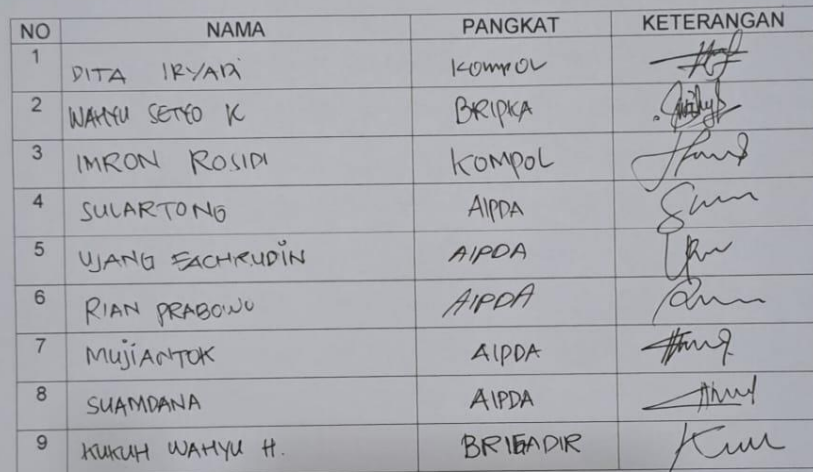 NO NAMA PANGKAT KETERANGAN
1 DITA IRYADI KOMPOL
2 WAHYU SETYO K BRIPKA
3 IMRON ROSIDI KOMPOL
4 SULARTONO AIPDA
5 UJANG FACHRUDIN AIPDA
6 RIAN PRABOWO AIPDA
7 MUJIANTOK AIPDA
8 SUAMDANA AIPDA
9 KUKUH WAHYU H. BRIGADIR